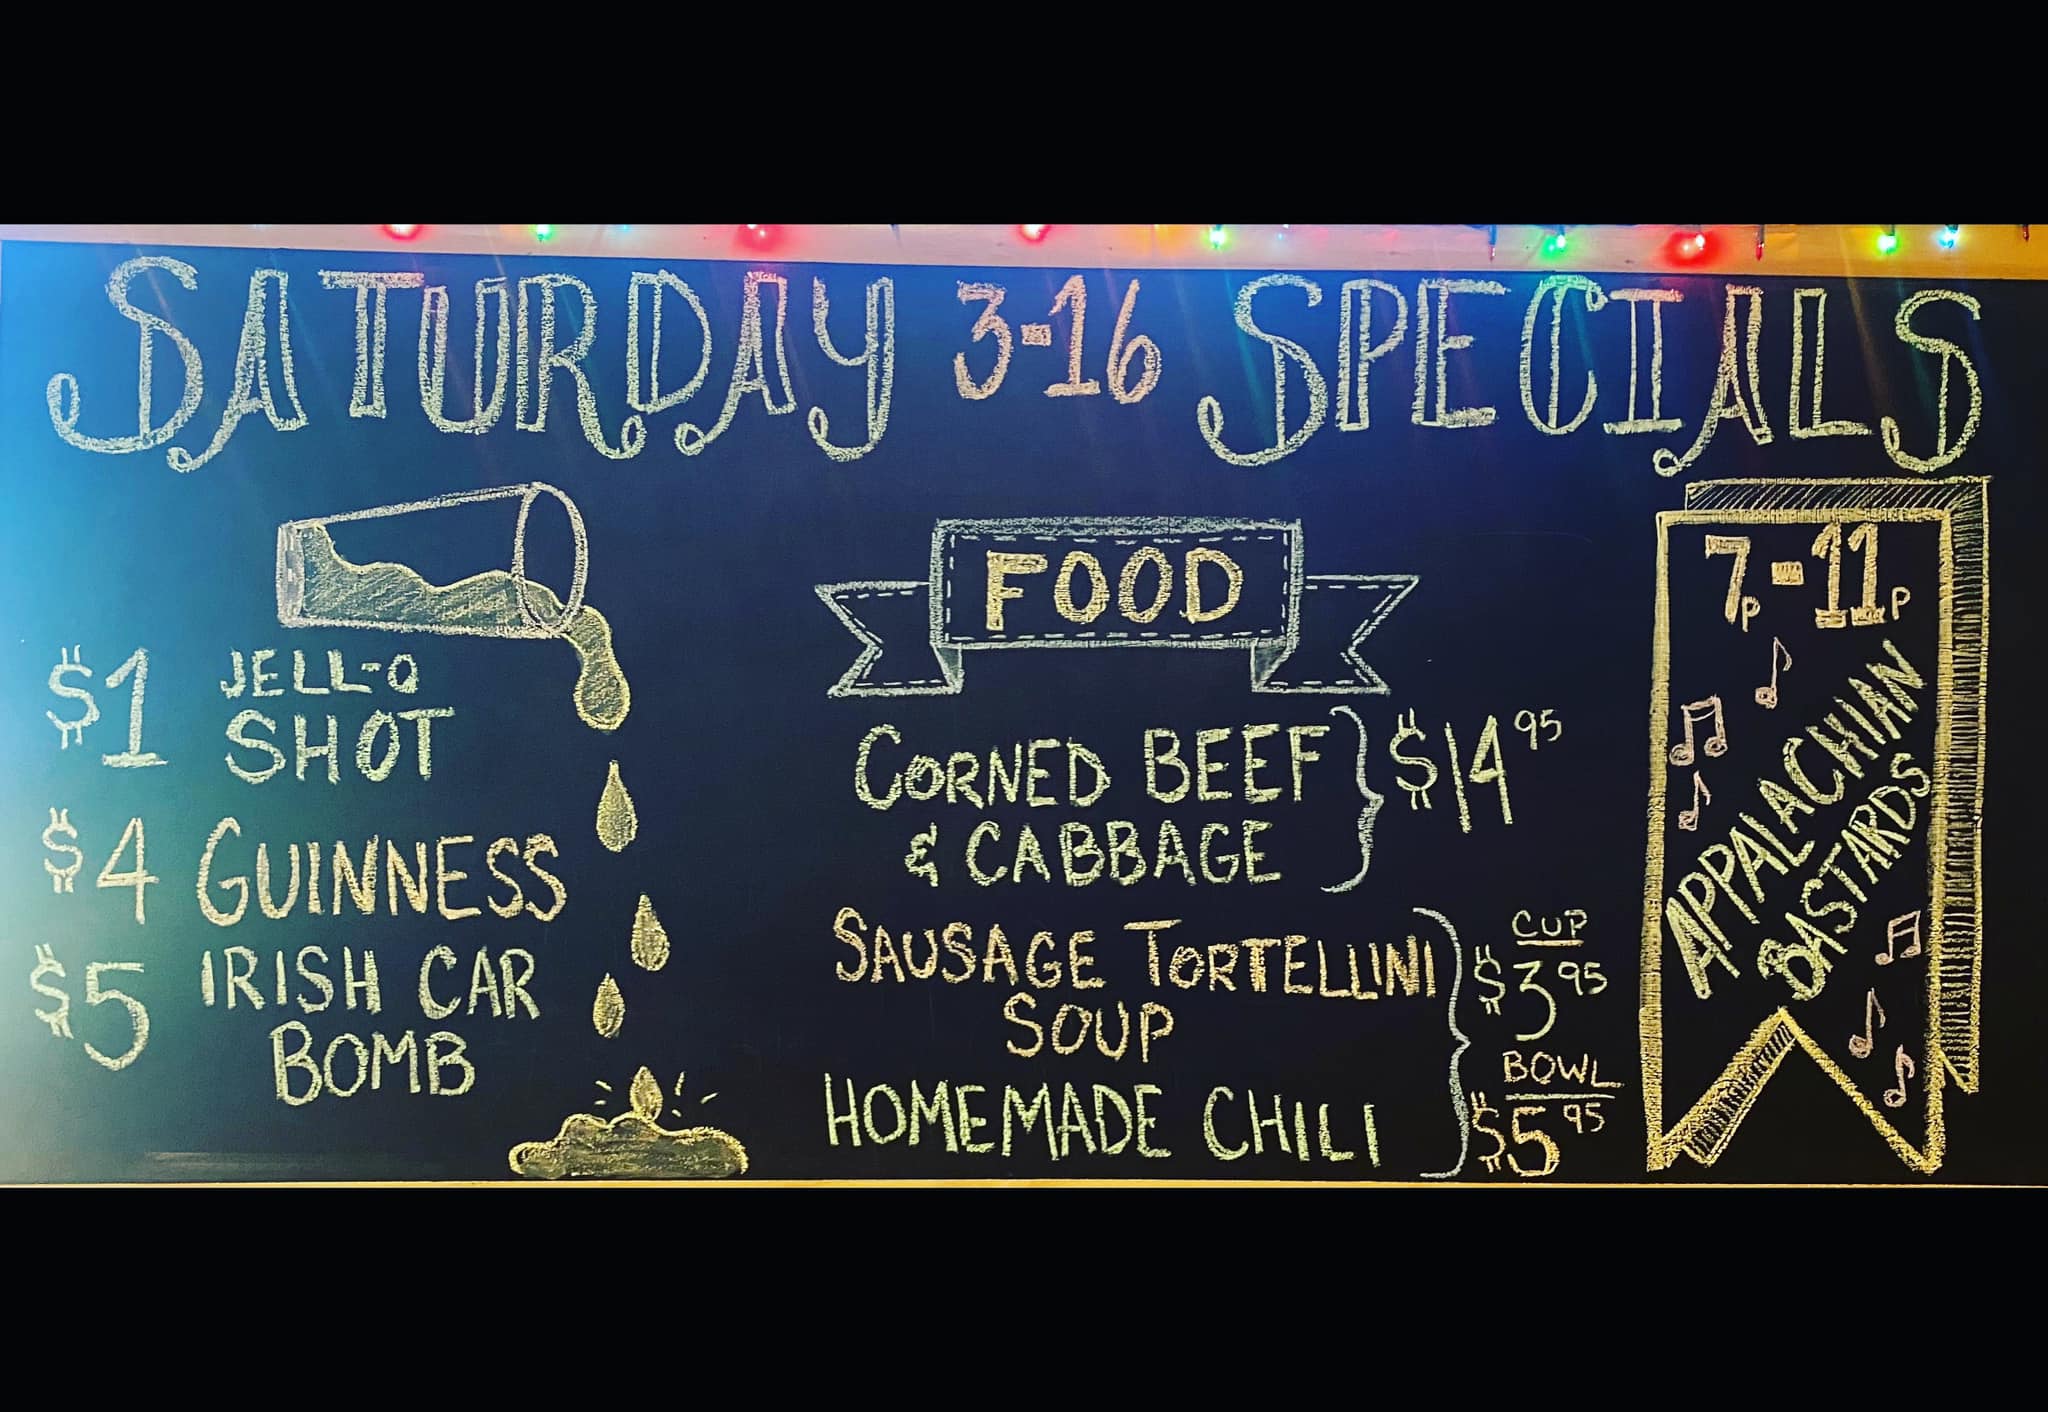 SATURDAY 3-16 SPECIALS
$1 JELL-O
SHOT
$4 GUINNESS
$5 IRISH CAR
BOMB
FOOD
CORNED BEEF
& CABBAGE
$14 95
SAUSAGE TORTELLINI
SOUP
HOMEMADE CHILI
CUP
$3 95
BOWL
$5 95
7P-11P
APPALACHIAN
BASTARDS